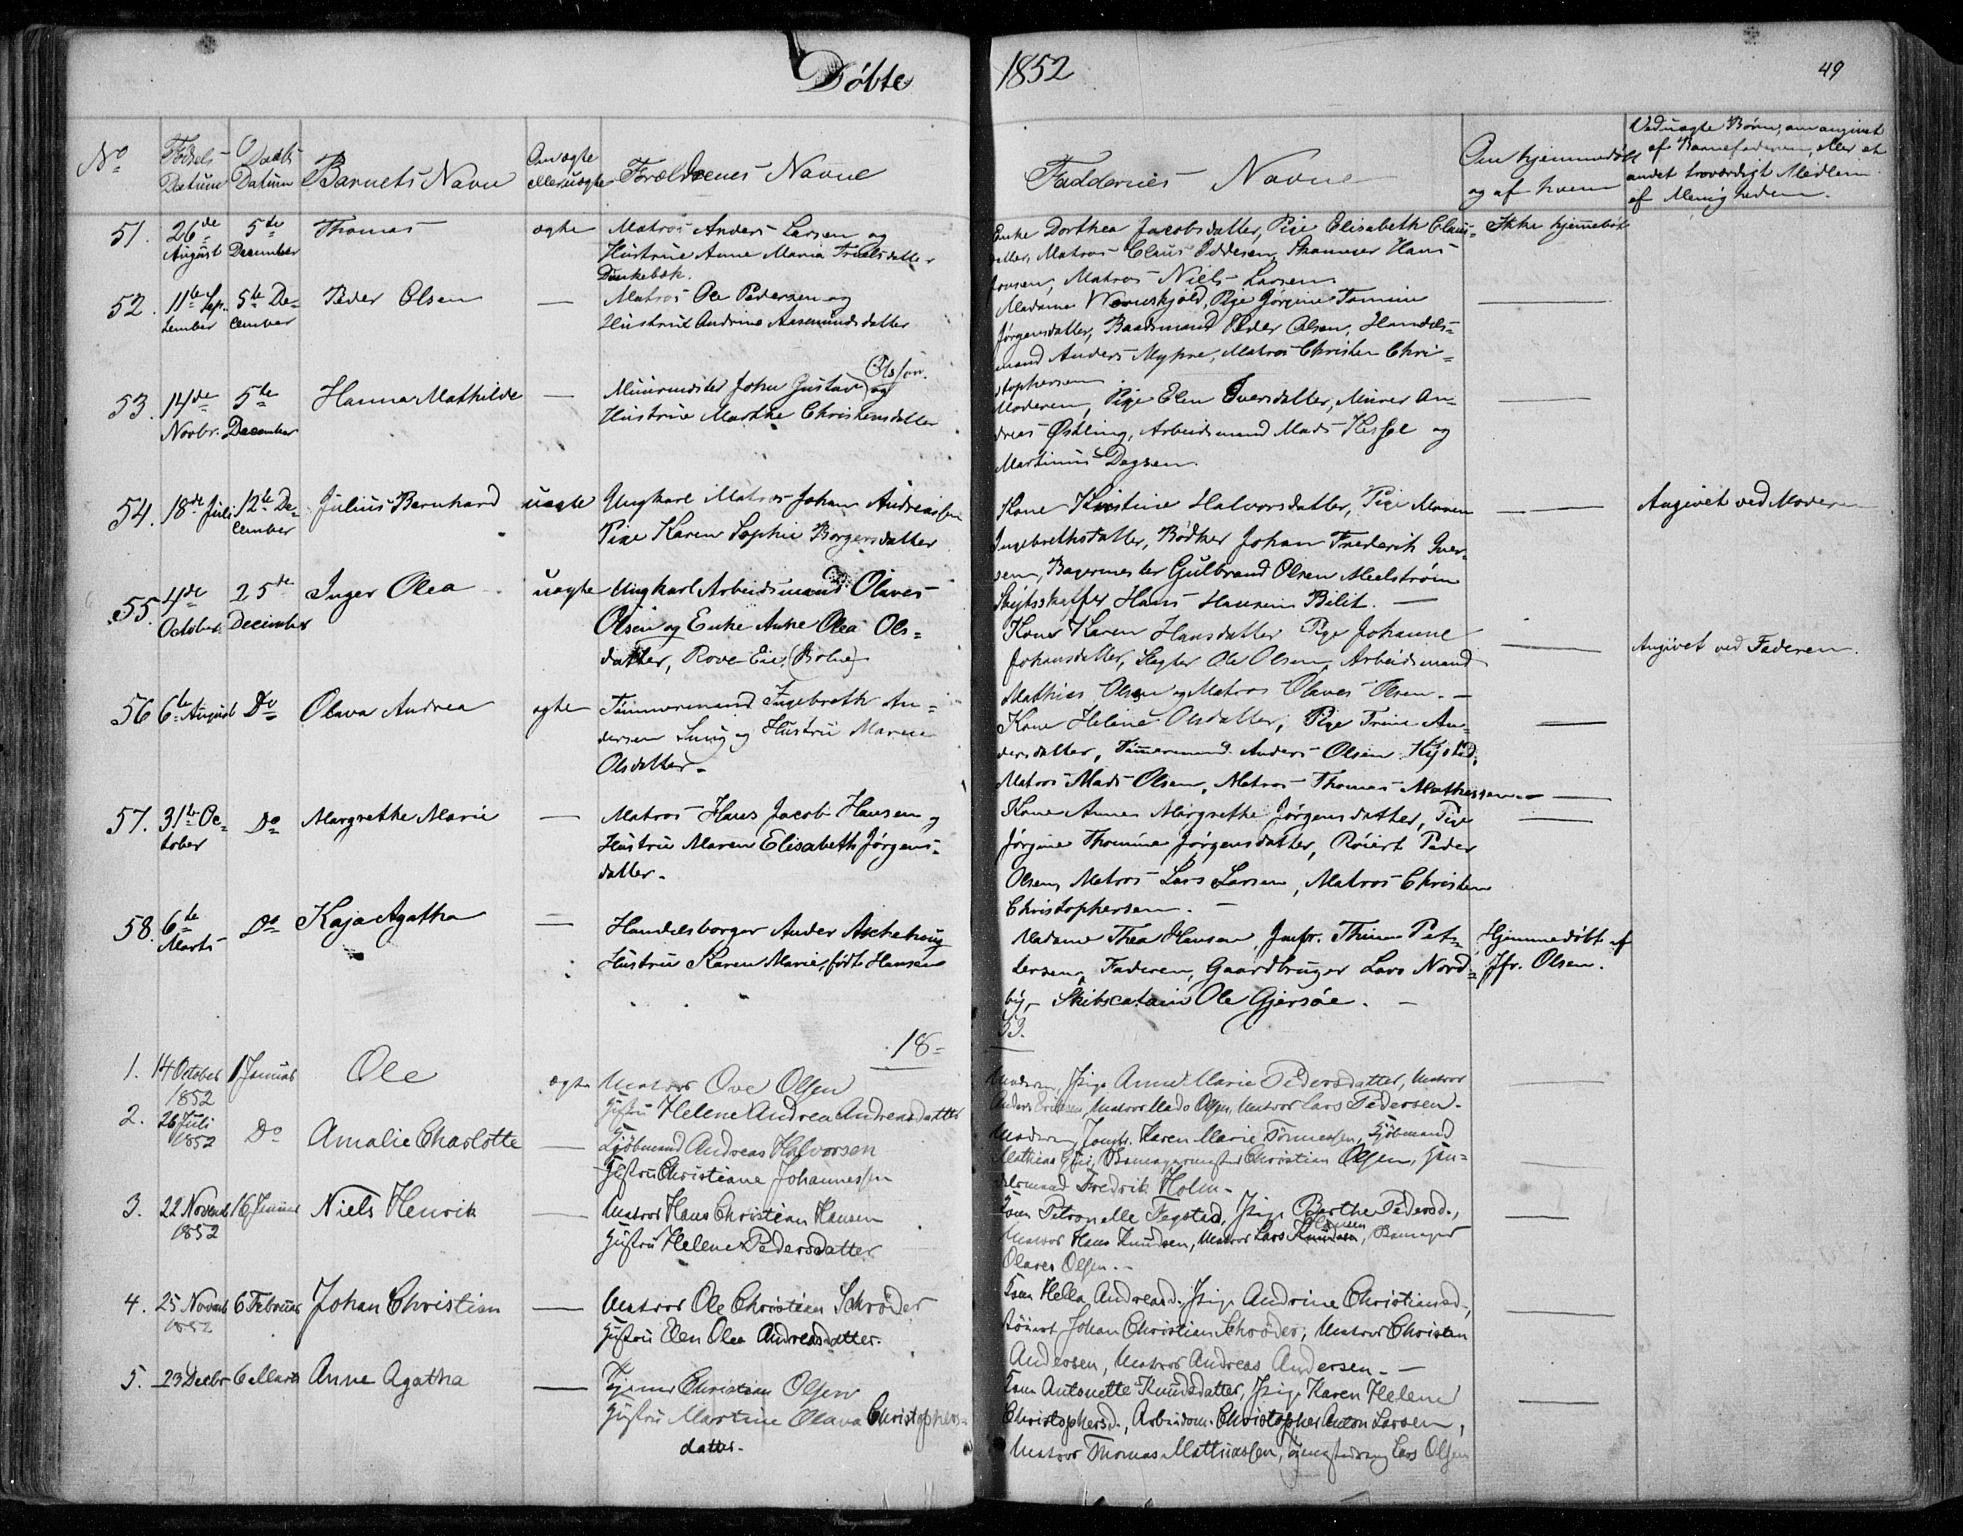 Døbte 1852
49
No
Fødsels Datum
Daabs Datum
Barnets Navn
Om ægte eller uægte
Forældrenes Navne
Faddernes Navne
Om hjemmedøbt og af hvem
Ved uægte Børn, om angivet
af Barnefaderen, eller et
andet troværdigt Medlem
af Menigheden.
51. 26de August 5te December Thomas ægte Matros Anders Larsen og
Hustrue Anne Maria Truelsdatter
Enke Dorthea Jacobsdatter, Pige Elisabeth Claus-
datter, Matros Claus Eddesen, Hans
Matros Niels Larsen
Ikke hjemmedøbt
52. 11te September 5te December Peder Olsen — Matros Ole Pedersen og
Hustrue Andrine Aasmundsdatter
Madame Pige Jørgine Tomine
Jørgensdatter, Baadsmand Peder Olsen, Handels-
mand Anders Myhre, Matros Christen Chri-
stophersen
—
53. 14de Novbr. 5te December Hanna Mathilde — Muurmester John Gustav Olsson og
Hustrue Marthe Christensdatter
Moderen, Pige Elen Iversdatter, Murer An-
dreas Østling, Arbeidsmand Mads Kessel og
Martinus Dagsen
—
54. 18de Juli 12te December Julius Bernhard uægte Ungkarl Matros Johan Andreassen
Pige Karen Sophie Borgersdatter
Kone Kirstine Halvorsdatter, Pige Maren
Ingebrethsdatter, Bødker Johan Frederik Iver-
sen, Bagermester Gulbrand Olsen Meelstrøm
Skydsskaffer Hans Hansen Bilit. —
—
Angivet ved Moderen
55. 4de October 25de December Inger Olea uægte Ungkarl Arbeidsmand Olaves
Olsen og Enke Anke Olea Ols-
datter, Rove Eie,
Kone Karen Hansdatter Pige Johanne
Johansdatter, Slagter Ole Olsen, Arbeidsmand
Mathias Olsen og Matros Olaves Olsen. —
—
Angivet ved Faderen.
56 6te August Do Olava Andrea ægte Tømmermand Ingebreth An-
dersen og Hustru Maren
Olsdatter.
Kone Heline Olsdatter, Pige Trine An-
dersdatter, Tømmermand Anders Olsen
Matros Mads Olsen, Matros Thomas Mathesen.—
—
57. 31te October Do Margrethe Marie — Matros Hans Jacob Hansen og
Hustru Maren Elisabeth Jørgens-
datter.
Kone Anne Margrethe Jørgensdatter, Pige
Jørgine Thomine Jørgensdatter, Røiert Peder
Olsen, Matros Lars Larsen, Matros Christen
Christophersen. —
—
58. 6te Marts Do Kaja Agatha — Handelsborger Ander Aschehoug
Hustru Karen Marie, født Hansen
Madame Thea Hansen, Jmfr. Thrine Pet-
tersen, Faderen, Gaardbruger Lars Nord-
by, Skibscatain Ole Gjersøe. —
Hjemmedøbt af
Jfr. Olsen.
18 53.
1. 14 October 1852 1 Januar Ole ægte Matros Ove Olsen
Hustru Helene Andrea Andreasdatter
Moderen, Pige Anne Marie Pedersdatter, Matros
Anders Eriksen, Matros Mads Olsen, Matros Lars Pedersen.
—
2. 26 Juli 1852 Do Amalie Charlotte — Kjøbmand Andreas Halvorsen
Hustru Christiane Johannessen
Moderen, Jomfr. Karen Marie Tønnesen, Kjøbmand
Mathias Bamagermester Christian Olsen, Han-
delsmand Fredrik Holm.
—
3. 22 Novemb 1852 16 Januar Niels Henrik — Matros Hans Christian Hansen
Hustru Helene Pedersdatter
Kone Petronelle Fegsted, Pige Berthe Pedersd.,
Matros Hans Knudsen, Matros Lars Knudsen Hansen,
Olaves Olsen.
—
4. 25 Novemb 1852 6 Februar Johan Christian — Matros Ole Christian Schrøder
Hustru Elen Olea Andreasdatter.
Kone Hella Andreasd. Pige Andrine Christiansd.,
Røiert Johan Christian Schrøder, Matros Christen
Andersen, Matros Andreas Andersen. —
—
5. 23 Decbr 6 Marts Anne Agatha — Christian Olsen
Hustru Martine Olava Christophers-
datter.
Kone Antonette Knudsdatter, Pige Karen Helene
Christophersd., Arbeidsm. Christopher Anton Larsen,
Matros Thomas Mathiassen, Lars Olsen
—